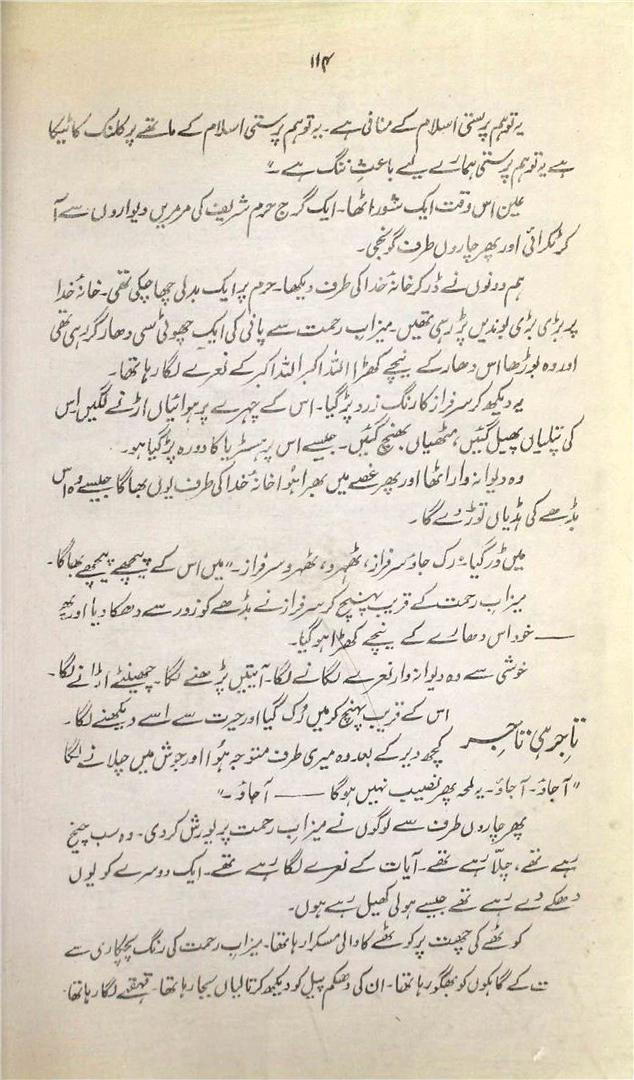 ۱۱۴
یہ توہم پرستی اسلام کے منافی ہے۔ یہ توہم پرستی اسلام کے ماتھے پر کلنک کا ٹیکا
ہے یہ توہم پرستی ہمارے لیے باعثِ ننگ ہے۔"
عین اس وقت ایک شور اٹھا۔ ایک گرج حرم شریف کی مرمریں دیواروں سے آ
کر ٹکرائی اور پھر چاروں طرف گونجی۔
ہم دونوں نے ڈر کر خانۂ خدا کی طرف دیکھا۔ حرم پر ایک بدلی چھا چکی تھی۔ خانۂ خدا
پر بڑی بڑی بوندیں پڑ رہی تھیں۔ میزابِ رحمت سے پانی کی ایک چھوٹی سی دھار گر رہی تھی
اور وہ بوڑھا اس دھار کے نیچے کھڑا اللہ اکبر اللہ اکبر کے نعرے لگا رہا تھا۔
یہ دیکھ کر سرفراز کا رنگ زرد پڑ گیا۔ اس کے چہرے پر ہوائیاں اڑنے لگیں اس
کی پتلیاں پھیل گئیں، مٹھیاں بھنچ گئیں۔ جیسے اس پر ہسٹریا کا دورہ پڑ گیا ہو۔
وہ دیوانہ وار اٹھا اور پھر غصے میں بھرا ہوا خانۂ خدا کی طرف یوں بھاگا جیسے وہ اس
بڈھے کی ہڈیاں توڑ دے گا۔
میں ڈر گیا: رک جاؤ سرفراز، ٹھہرو، ٹھہرو سرفراز۔" میں اس کے پیچھے پیچھے بھاگا۔
میزابِ رحمت کے قریب پہنچ کر سرفراز نے بڈھے کو زور سے دھکا دیا اور پھر
—— خود اس دھارے کے نیچے کھڑا ہو گیا۔
خوشی سے وہ دیوانہ وار نعرے لگانے لگا۔ آیتیں پڑھنے لگا۔ چھینٹے اڑانے لگا۔
اس کے قریب پہنچ کر میں رُک گیا اور حیرت سے اسے دیکھنے لگا۔
تاجر ہی تاجر
کچھ دیر کے بعد وہ میری طرف متوجہ ہوا اور جوش میں چلانے لگا
"آ جاؤ۔ آ جاؤ۔ یہ لمحہ پھر نصیب نہیں ہو گا —— آ جاؤ۔"
پھر چاروں طرف سے لوگوں نے میزابِ رحمت پر یورش کر دی۔ وہ سب چیخ
رہے تھے، چلّا رہے تھے۔ آیات کے نعرے لگا رہے تھے۔ ایک دوسرے کو یوں
دھکے دے رہے تھے جیسے ہولی کھیل رہے ہوں۔
کوٹھے کی چھت پر کوٹھے کا والی مسکرا رہا تھا۔ میزابِ رحمت کی رنگ پچکاری سے
ت کے گاہکوں کو بھگو رہا تھا۔ ان کی دھکم پیل کو دیکھ کر تالیاں بجا رہا تھا۔ قہقہے لگا رہا تھا۔